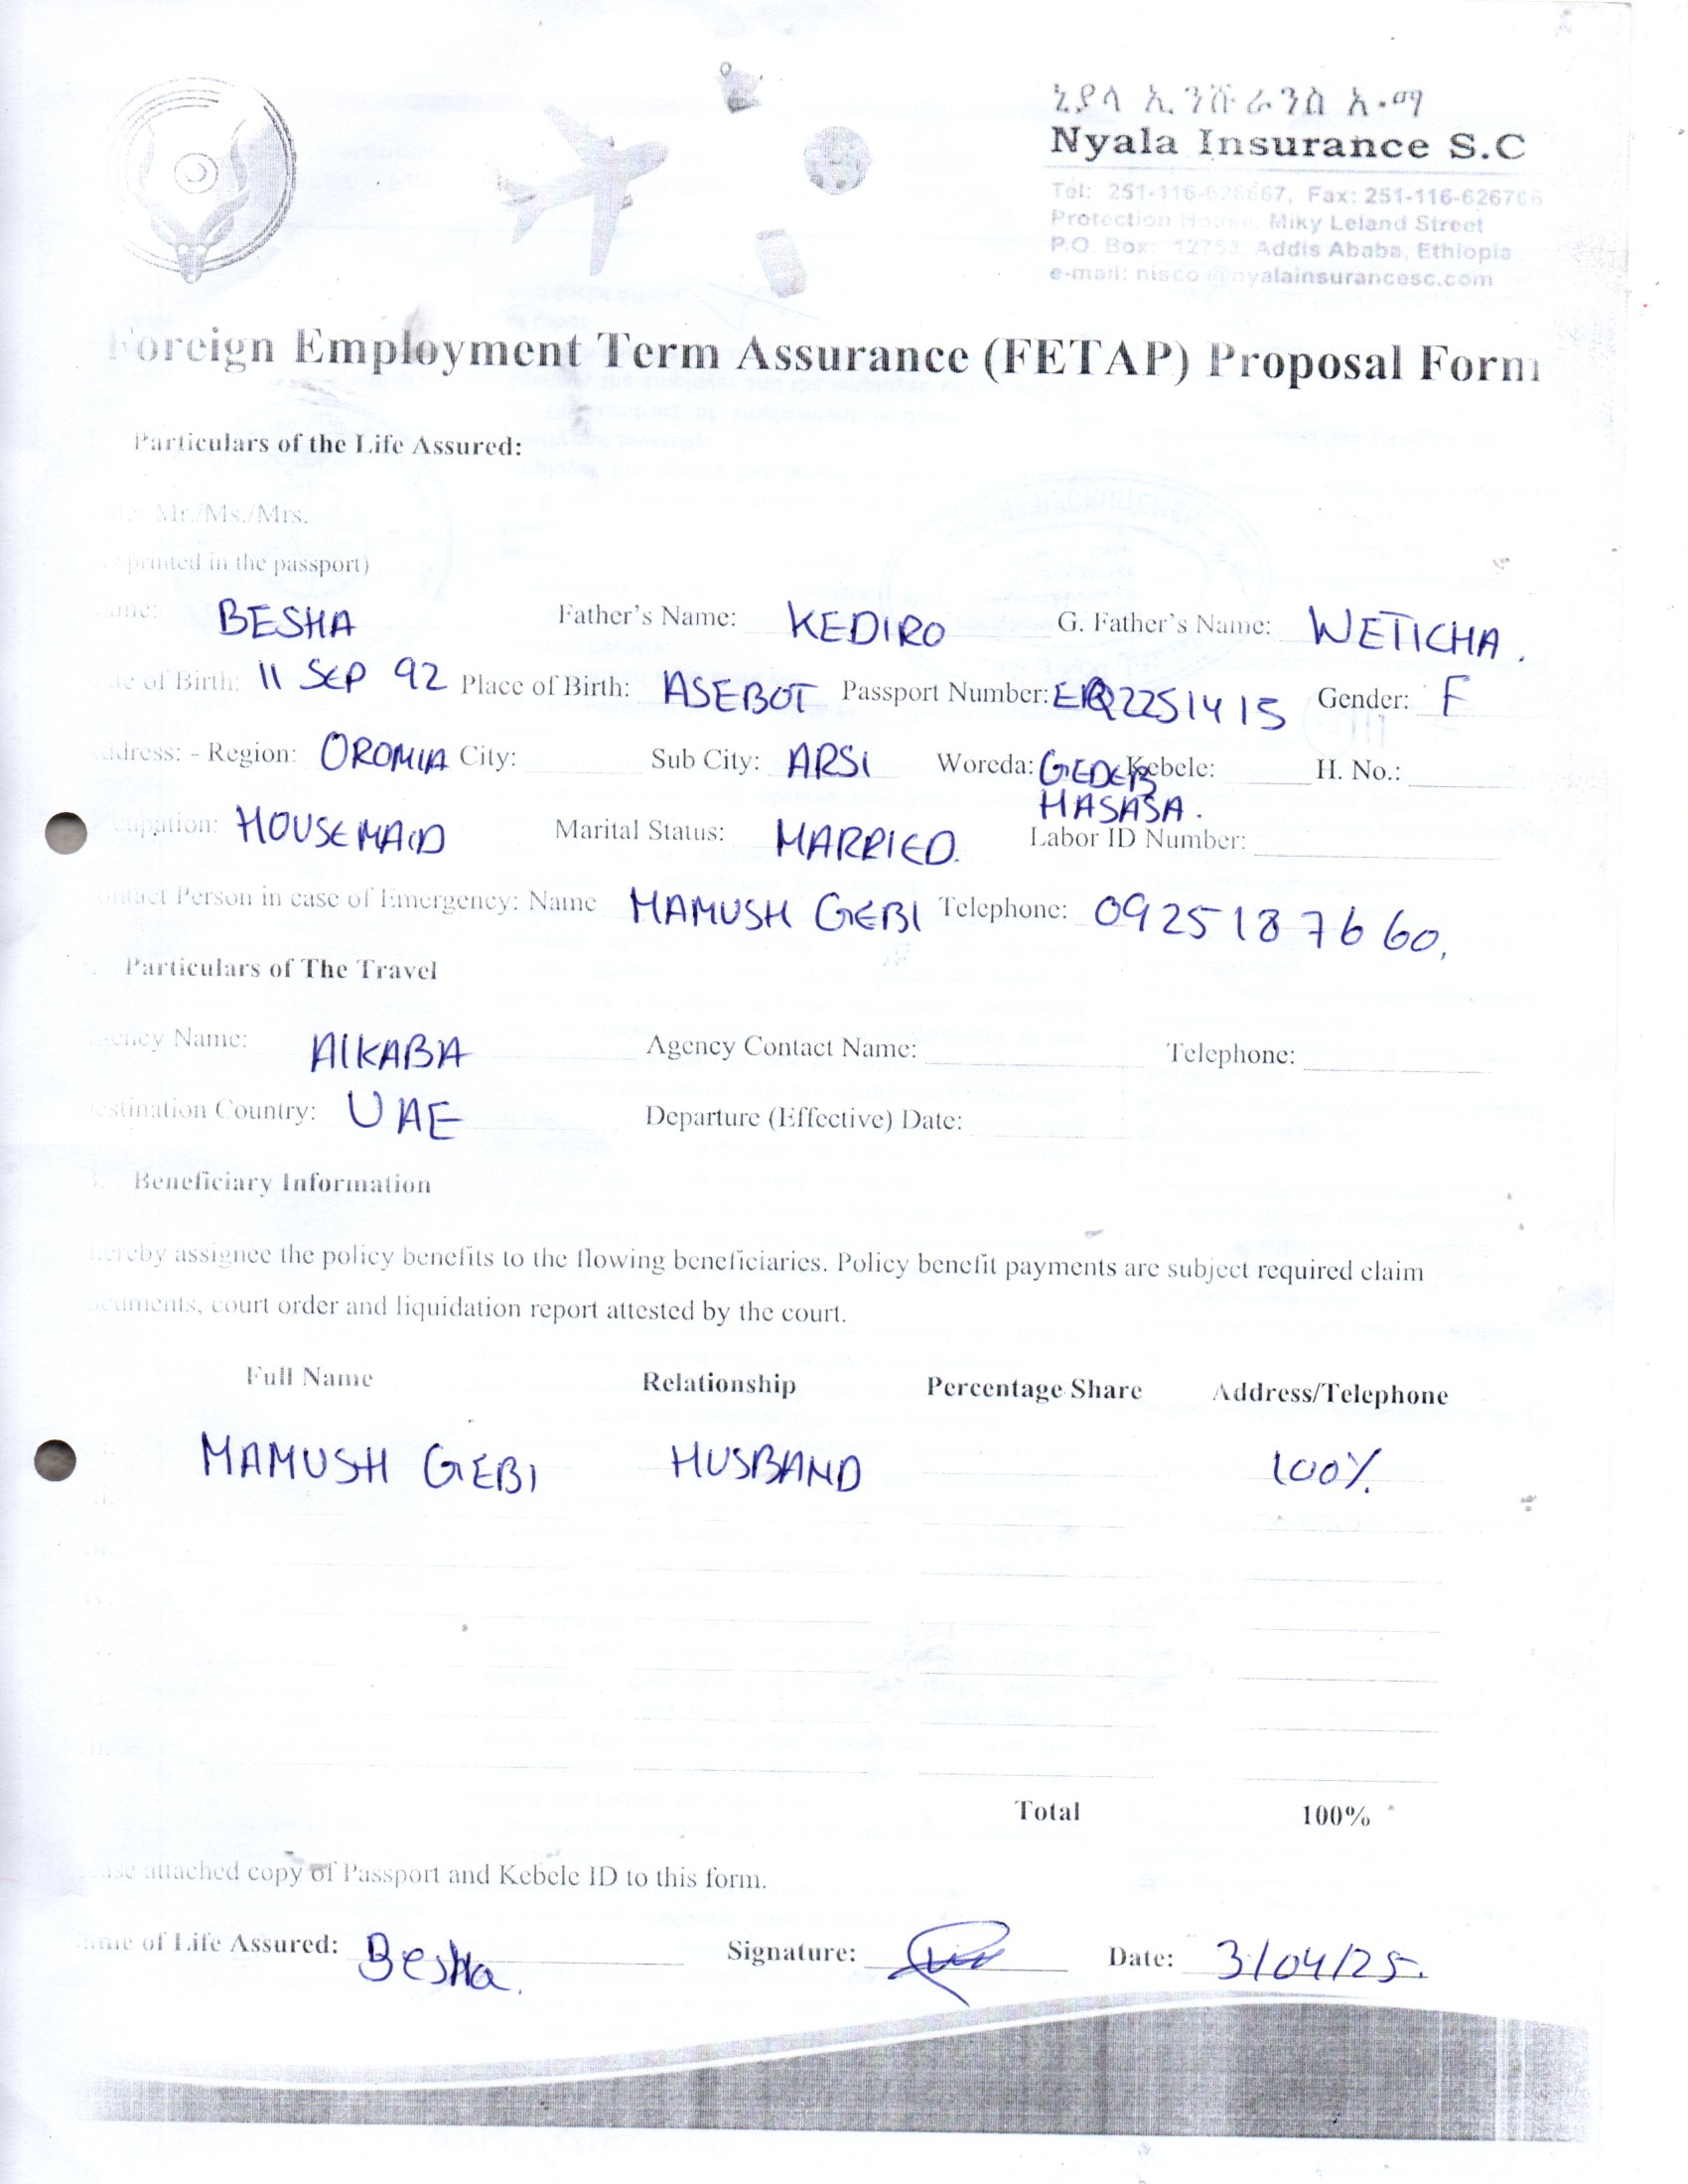 ኒያላ ኢንሹራንስ አ.ማ
Nyala Insurance S.C
Tel: 251-116-626667, Fax: 251-116-626706
Protection House, Miky Leland Street
P.O. Box: 12753 Addis Ababa, Ethiopia
e-mail: nisco @nyalainsurancesc.com
Foreign Employment Term Assurance (FETAP) Proposal Form
Particulars of the Life Assured:
Mr./Ms./Mrs.
printed in the passport)
BESHA Father's Name: KEDIRO G. Father's Name: WETICHA.
of Birth: 11 SEP 92 Place of Birth: ASEBOT Passport Number: 2251415 Gender: F
- Region: OROMIA City: Sub City: ARSI Woreda: GEDEB HASASA. Kebele: H. No.:
HOUSEMAID Marital Status: MARRIED. Labor ID Number:
Person in case of Emergency: Name MAMUSH GEBI Telephone: 0925187660,
Particulars of The Travel
Name: AlKABA Agency Contact Name: Telephone:
Country: UAE Departure (Effective) Date:
Beneficiary Information
hereby assignee the policy benefits to the flowing beneficiaries. Policy benefit payments are subject required claim
documents, court order and liquidation report attested by the court.
Full Name Relationship Percentage Share Address/Telephone
MAMUSH GEBI HUSBAND 100%
Total 100%
attached copy of Passport and Kebele ID to this form.
of Life Assured: Besha. Signature: Date: 3/04/25.